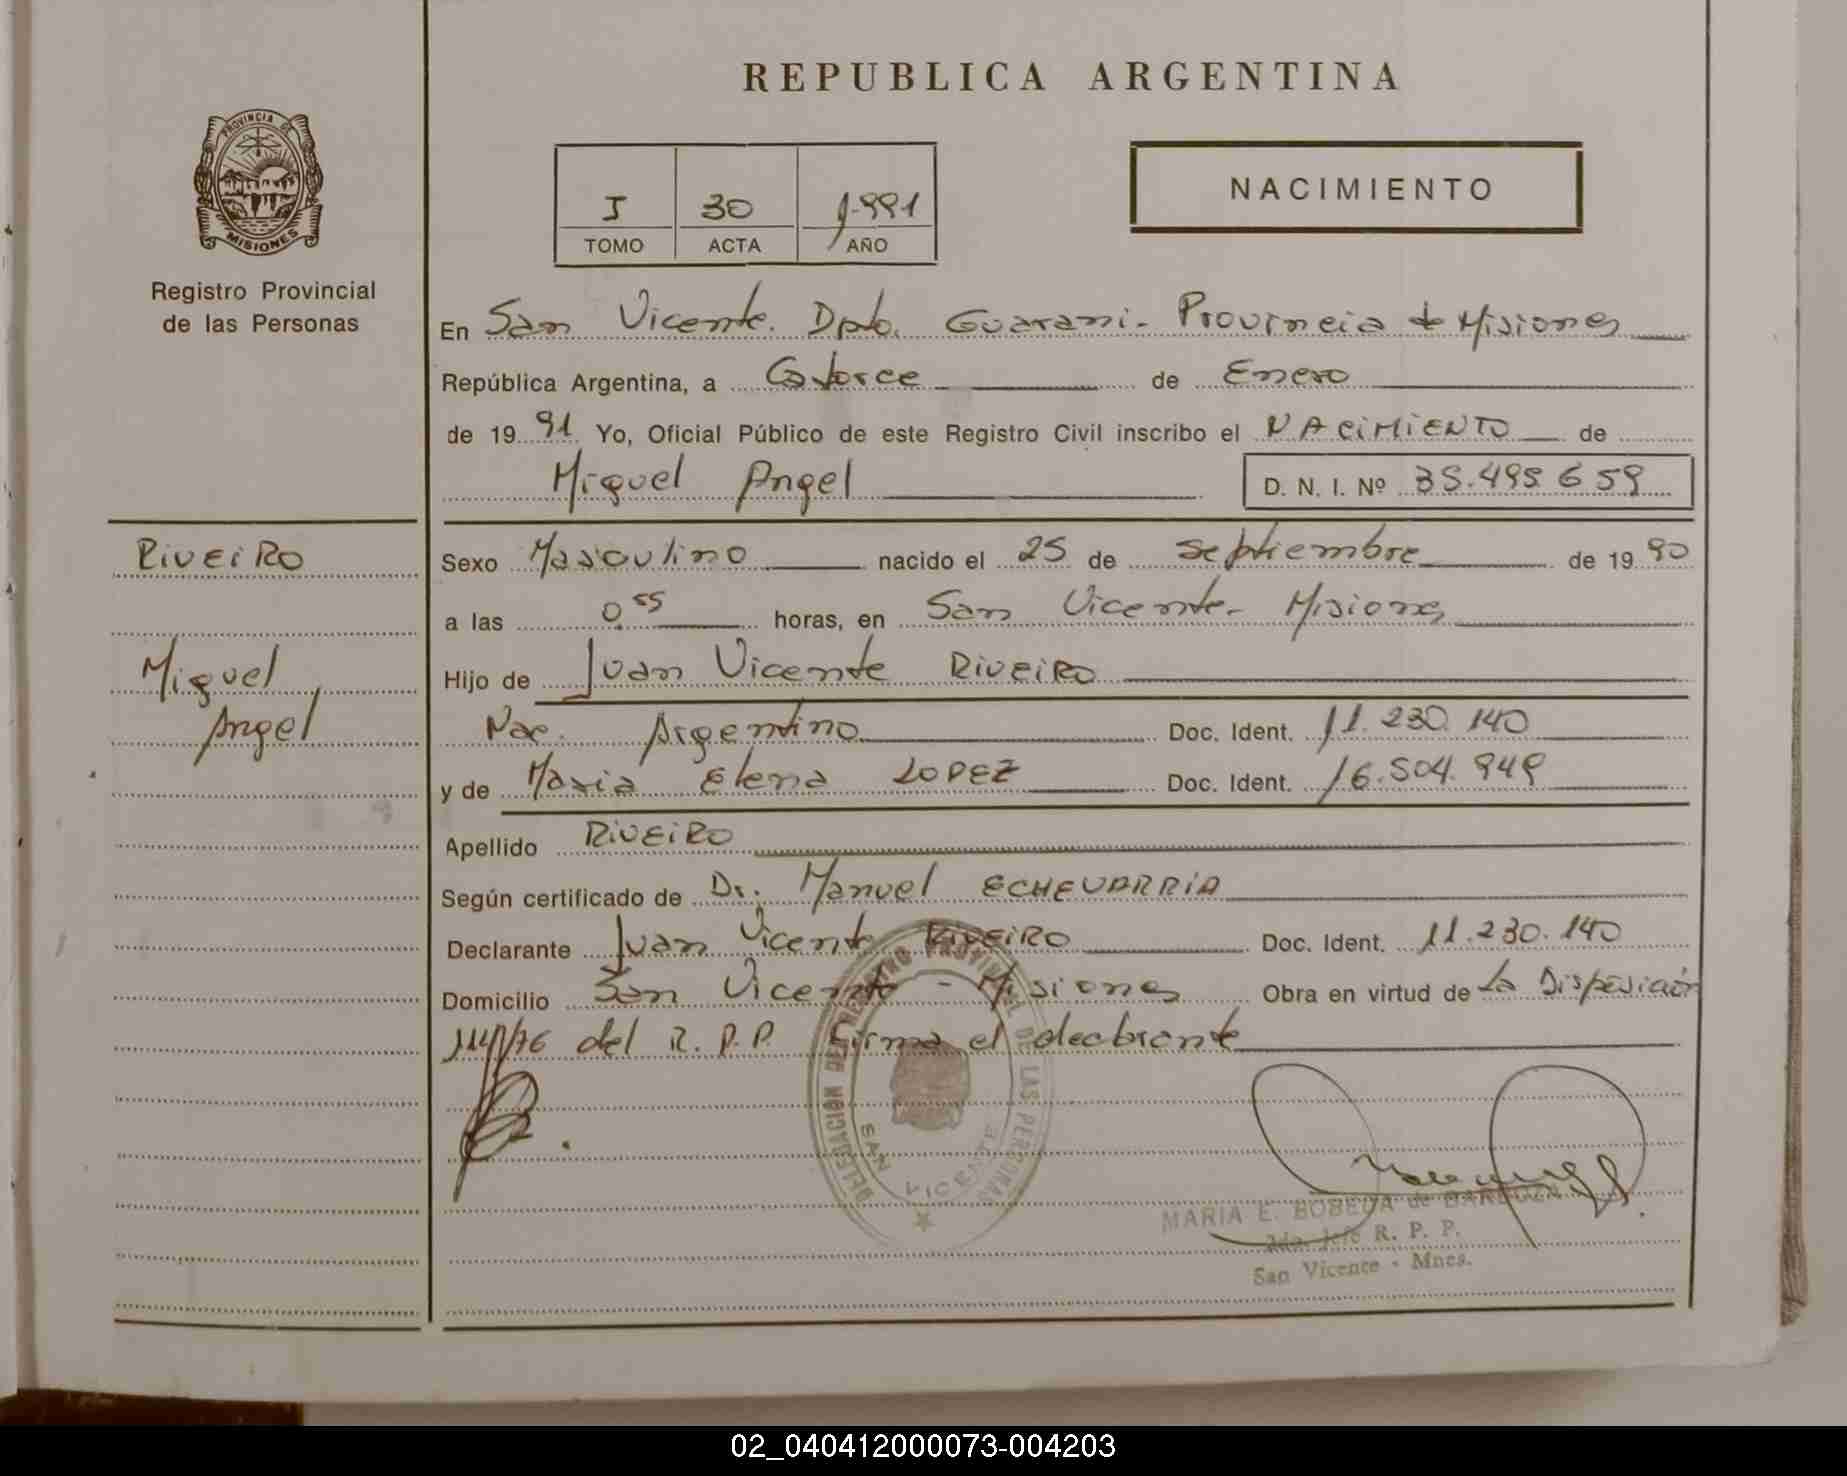 REPUBLICA ARGENTINA
PROVINCIA DE
MISIONES
Registro Provincial
de las Personas
I 30 1.991
TOMO ACTA AÑO
NACIMIENTO
En San Vicente. Dpto. Guarani- Provincia de Misiones
República Argentina, a Catorce de Enero
de 19 91 Yo, Oficial Público de este Registro Civil inscribo el NACIMIENTO de
Miguel Angel D. N. I. Nº 35.495.659
RIVEIRO
Miguel
Angel
Sexo Masculino nacido el 25 de Septiembre de 19 90
a las 0.55 horas, en San Vicente- Misiones
Hijo de Juan Vicente RIVEIRO
Nac. Argentino Doc. Ident. 11.230.140
y de Maria Elena LOPEZ Doc. Ident. 16.504.949
Apellido RIVEIRO
Según certificado de Dr. Manuel ECHEVARRIA
Declarante Juan Vicente RIVEIRO Doc. Ident. 11.230.140
Domicilio San Vicente - Misiones Obra en virtud de La Disposición
114/76 del R. P. P. Firma el declarante
DELEGACIÓN DEL REGISTRO PROVINCIAL DE LAS PERSONAS
SAN VICENTE
MARIA E. BOBEDA de BARBOZA
Jefe R. P. P.
San Vicente - Mnes.
02_040412000073-004203